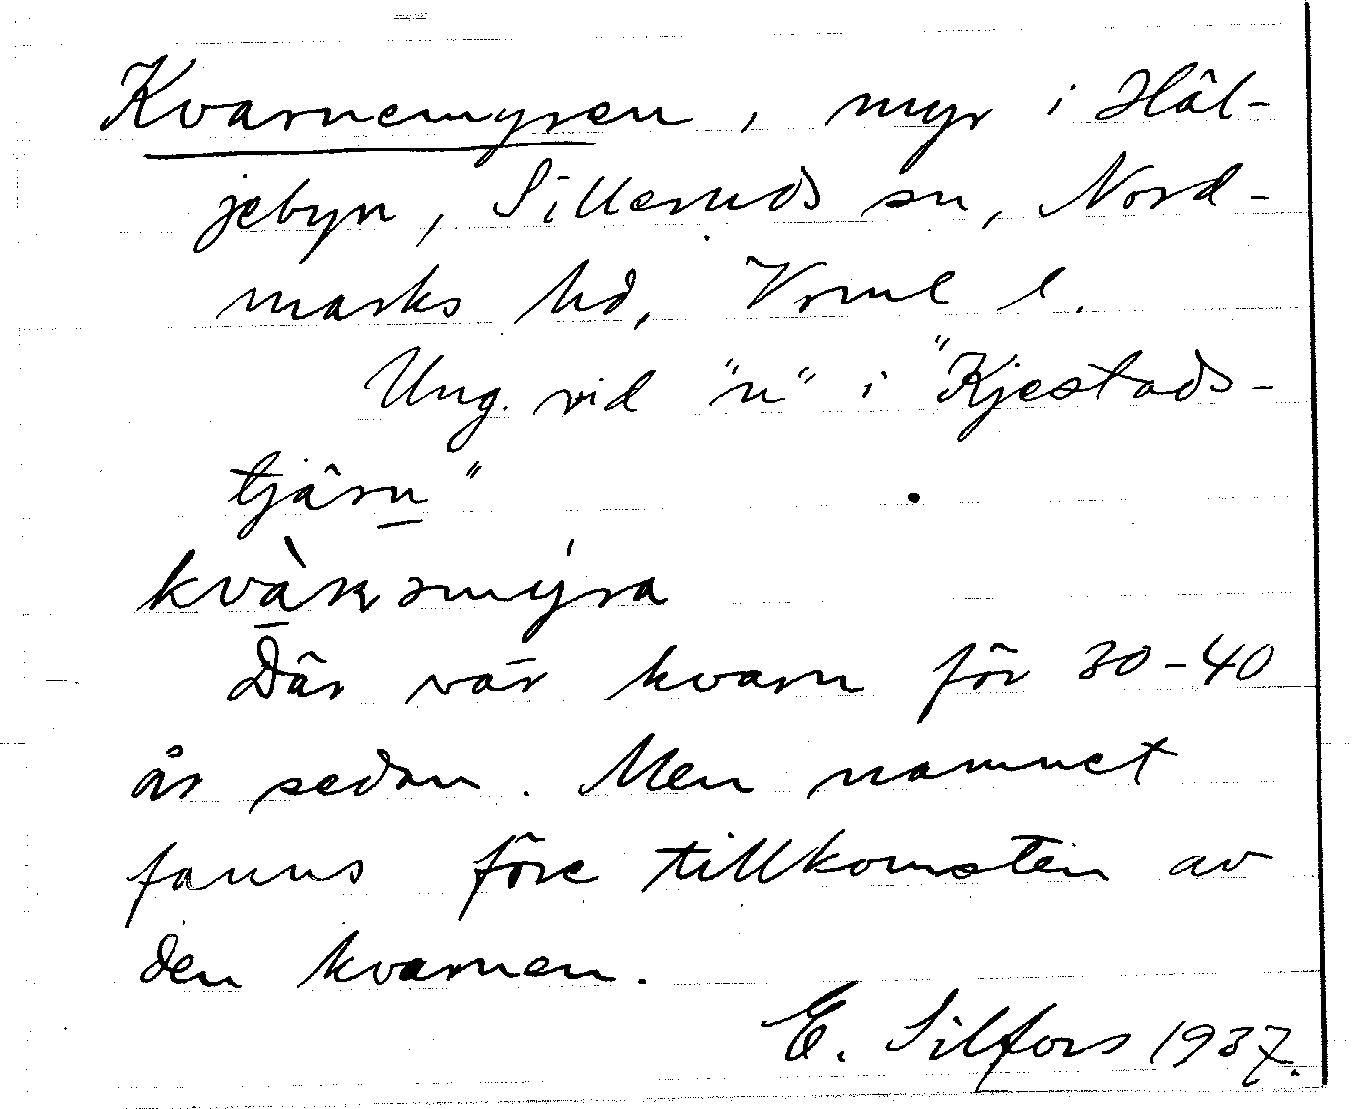 Kvarnemyren, myr i Häl-
jebyn, Silleruds sn, Nord-
marks hd, Vrml l.
Ung. vid "n" i "Kjestads-
tjärn"
Där var kvarn för 30-40
år sedan. Men namnet
fanns före tillkomsten av
den kvarnen.
E. Silfors 1937.